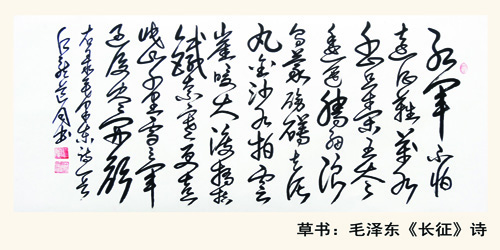 红军不怕
远征难万水
千山只等闲五岭
逶迤腾细浪
乌蒙磅礴走泥
丸金沙水拍云
崖暖大渡桥横
铁索寒更喜
岷山千里雪三军
过后尽开颜
右录毛泽东诗一首
草书：毛泽东《长征》诗